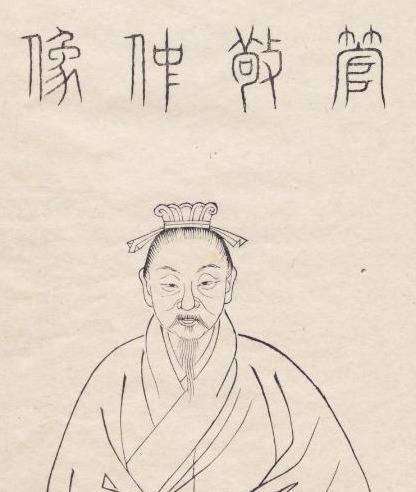 管敬仲像